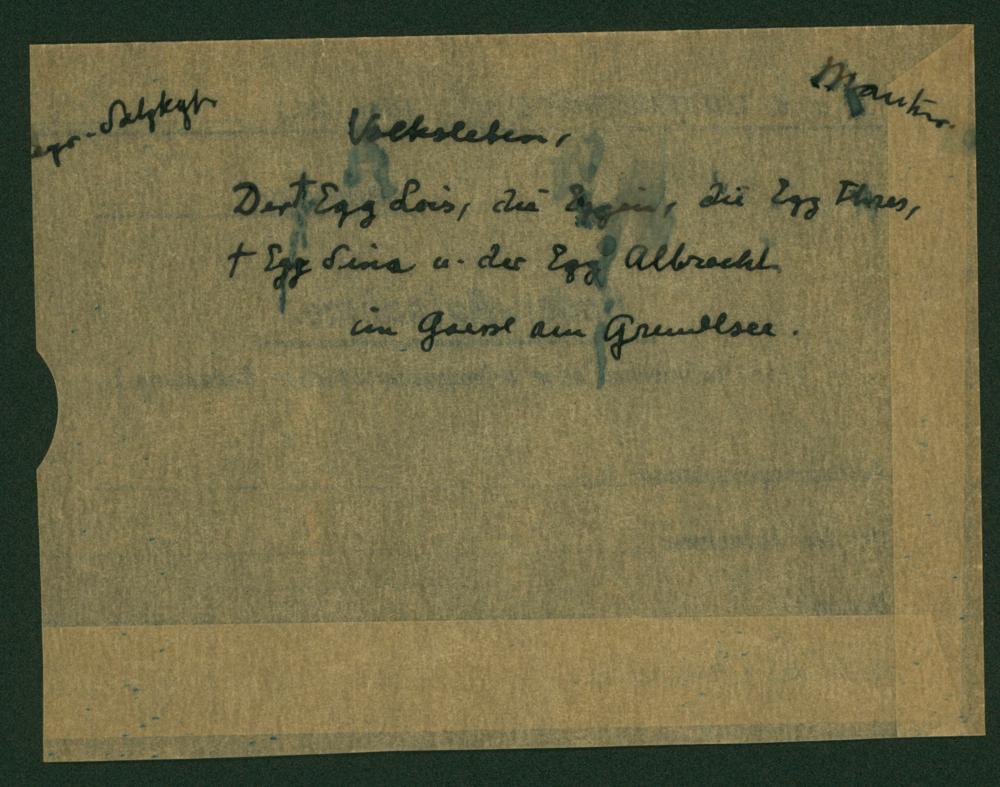 Salzkgt.
Mautner
Volksleben,
Der † Egg Lois, die Eggin, die Egg Thres,
† Egg Lina u. der Egg Albrecht
im Goessl am Grundlsee.